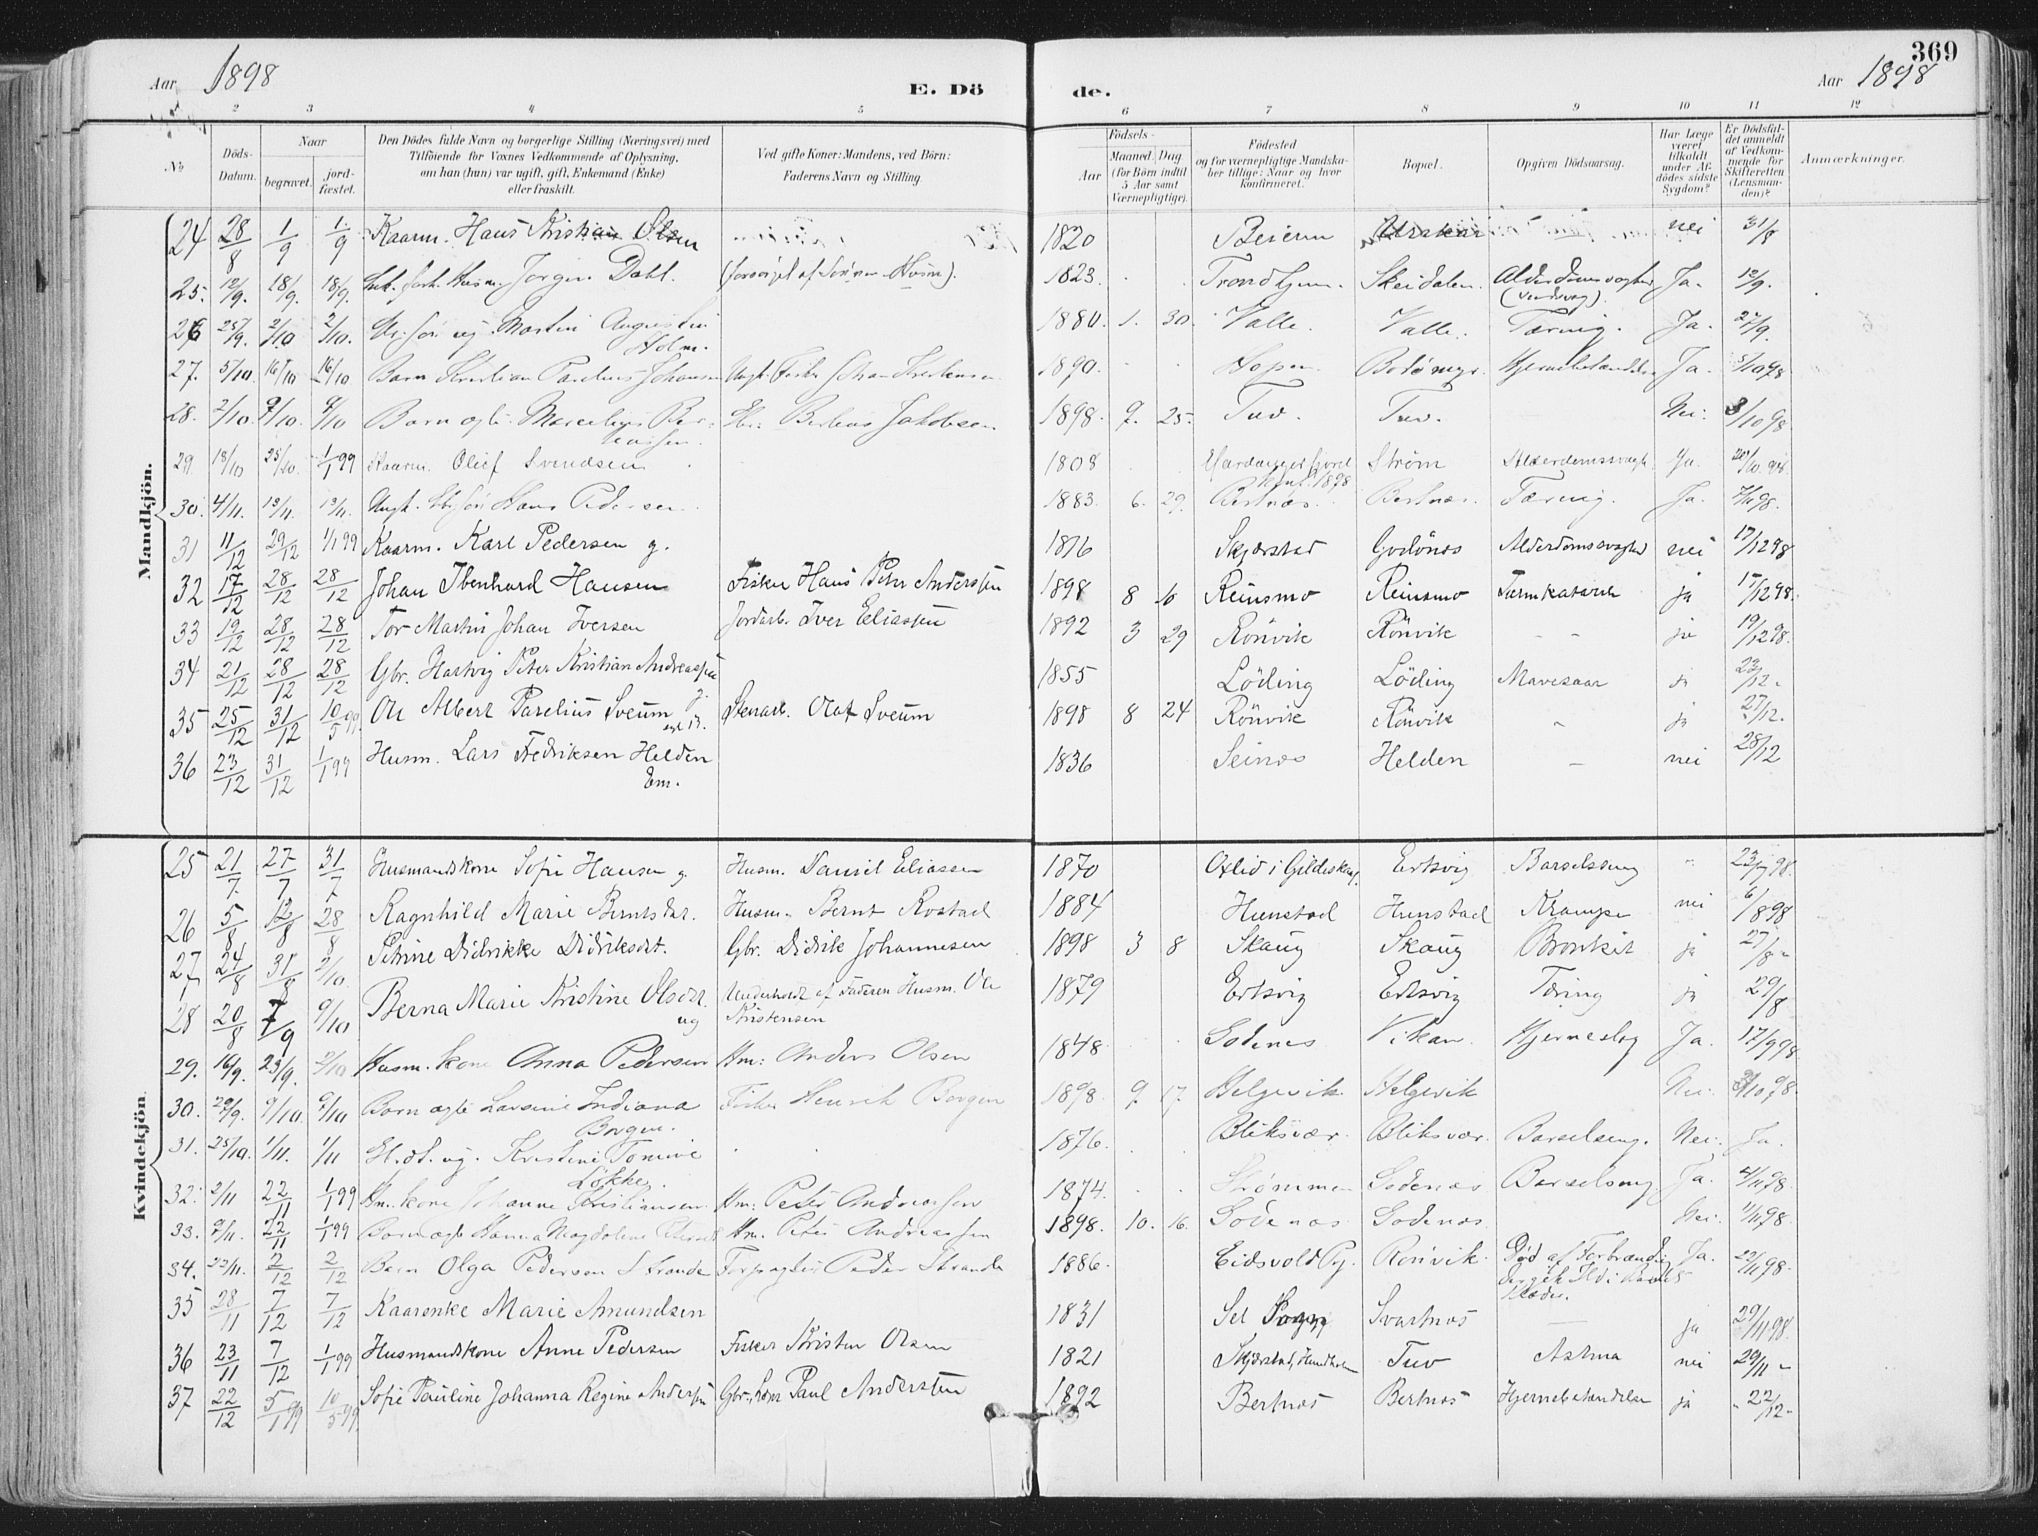 369
Aar 1898 E. Dö de. Aar 1898
2 3 4 5 6 7 8 9 10 11 12
No Döds-Datum. Naar begravet. jordfæstet. Den Dödes fulde Navn og borgerlige Stilling (Næringsvei) med Tilföiende for Voxnes Vedkommende af Oplysning, om han (hun) var ugift, gift, Enkemand (Enke) eller fraskilt. Ved gifte Koner: Mandens, ved Börn: Faderens Navn og Stilling Födsels- Aar Maaned. Dag (for Börn indtil 5 Aar samt Værnepligtige). Födested og for værnepligtige Mandskaber tillige: Naar og hvor konfirmeret. Bopæl. Opgiven Dödsaarsag. Har Læge været tilkaldt under Afdödes sidste Sygdom? Er Dödsfaldet anmeldt af Vedkommende for Skifteretten (Lensmanden)? Anmærkninger.
Mandkjön.
24 28/8 1/9 1/9 Kaarm. Hans Kristian Olsen 1820 Beieren nei 31/8
25. 12/9. 18/9. 18/9. Jörgen Dahl. 1823. Trondhjem Skeidalen Alderdomssvaghed Ja. 12/9.
26 25/9. 2/10 2/10. Martin Augustin Holm. 1880. 1. 30. Valle. Valle. Tæring. Ja. 27/9.
27. 5/10. 16/10 16/10 Barn Kristian Parelius Johansen Johan Kristensen 1890. Hopen Bodömyr. Hjernebetændelse Ja. 5/10 98
28. 2/10. 9/10. 9/10 Barn ægte Marcelius Bertensen. Berteus Jakobsen 1898. 9. 25. Tuv. Tuv. Nei. 3/10 98
29. 18/10 25/10. 1/1 99 Kaarm. Olief Svendsen 1808 Hardangerfjord Ström Alderdomssvagh. Ja.
30. 4/11. 13/11. 13/11. Ungk. Hans Pedersen. 1883. 6. 29. Bertnæs. Bertnæs. Tæring. Ja. 7/11 98.
31 11/12 29/12 1/1 99 Kaarm. Karl Pedersen g. 1816 Skjerstad Godönæs Alderdomssvaghed nei 17/12 98
32 17/12 28/12 28/12 Johan Ibenhard Hansen Fisker Hans Peter Anderssen 1898 8 10 Reinsmo Reinsmo Tarmkatarrh ja 17/12 98.
33 19/12 28/12 28/12 Tor Martin Johan Iversen Jordarb. Iver Eliassen 1892 3 29 Rönvik Rönvik - - ja 19/12 98.
34 21/12 28/12 28/12 Gbr. Hartvig Peter Kristian Andreassen g. 1855 Löding Löding Mavesaar ja 23/12
35 25/12 31/12 10/5 99. Ole Albert Parelius Sveum Stenarb. Olaf Sveum 1898 8 24 Rönvik Rönvik - ja 27/12.
36 23/12 31/12 1/1 99 Husm. Lars Fredriksen Helden Em. 1836 Seines Helden - nei 28/12
Kvindekjön.
25 21/7 27/7 31/7 Husmandskone Sofie Hansen g Husm. Daniel Eliassen 1870 Oxlid i Gildeskaal. Ertsvig Barselseng - 23/7 98.
26 5/8 12/8 28/8 Ragnhild Marie Berntsdat. Husm. Bernt Rostad 1884 Hunstad Hunstad Krampe nei 6/8 98
27 24/8 31/8 2/10 Petrine Didrikke Didriksdt. Gbr. Didrik Johannesen 1898 3 8 Skaug Skaug Bronkit ja 27/8
28 20/8 7/9 9/10 Berna Marie Kristine Olsdt. ug Underholdt af Faderen Husm. Ole Kristensen 1879 Ertsvig Ertsvig Tæring ja 29/8
29. 16/9. 23/9. 2/10 Husm. kone Anna Pedersen Hm: Anders Olsen 1848. Godenes Vikan. Hjerneslag Ja. 17/9 98.
30. 29/9. 9/10. 9/10 Barn ægte Lavine Indiana Borgen. Fisker Henrik Borgen 1898. 9. 17. Helgevik. Helgevik Nei. 3/10 98.
31. 25/10. 1/11. 1/11 ug. Kristine Tomine Lökke. 1876. Bliksvær. Bliksvær. Barselseng. Nei. Ja.
32. 2/11 22/11 1/1 99 Hm. kone Johanne Kristiansen Hm: Peter Andreassen 1874. Strömmen Godenæs Barselseng. Ja. 4/11 98.
33. 9/11. 22/11 1/1 99 Barn ægte Hanna Magdalena Hm. Peter Andreassen 1898. 10. 16. Godenæs Godenæs. Nei. 11/11 98.
34. 22/11. 2/12 2/12 Barn Olga Pedersen Strande Forpagter Peder Strande 1886. Eidsvold Rönvik. Död af Forbrænding Ja. 22/11 98.
35 28/11 7/12 7/12 Kaarenke Marie Amundsen 1831 Svartnæs - ja 29/11 98.
36 23/11 7/12 1/1 99 Husmandskone Anne Pedersen Fisker Kristen Olsen 1821 Skjerstad, Tuv Astma nei 29/11 -
37 22/12 5/1 99 10/5 99. Sofie Pauline Johanna Regine Anderssen Gbr. Paul Anderssen 1892 Bertnæs Bertnæs Hjernebetændelse ja - 22/12 -